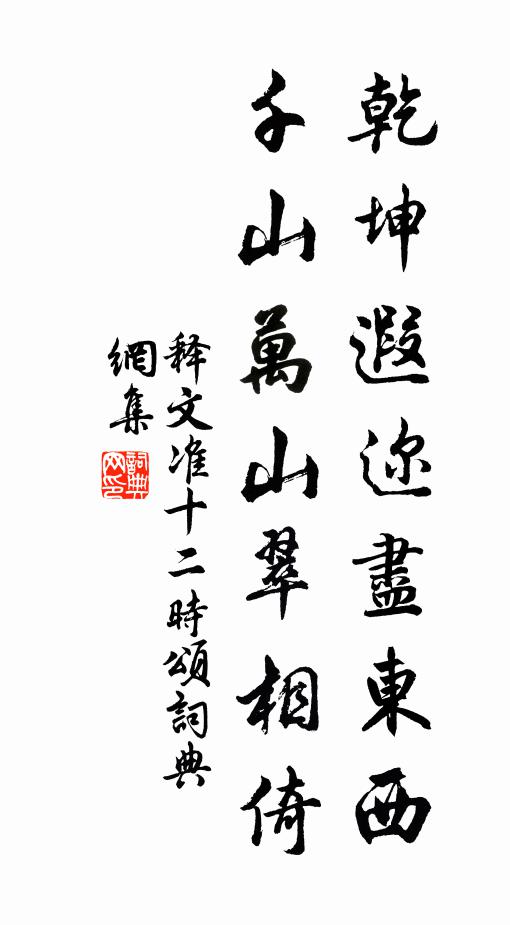 乾坤遐迩盡東西
千山萬山翠相倚
释文准十二時頌詞典
網集
詞典
网印